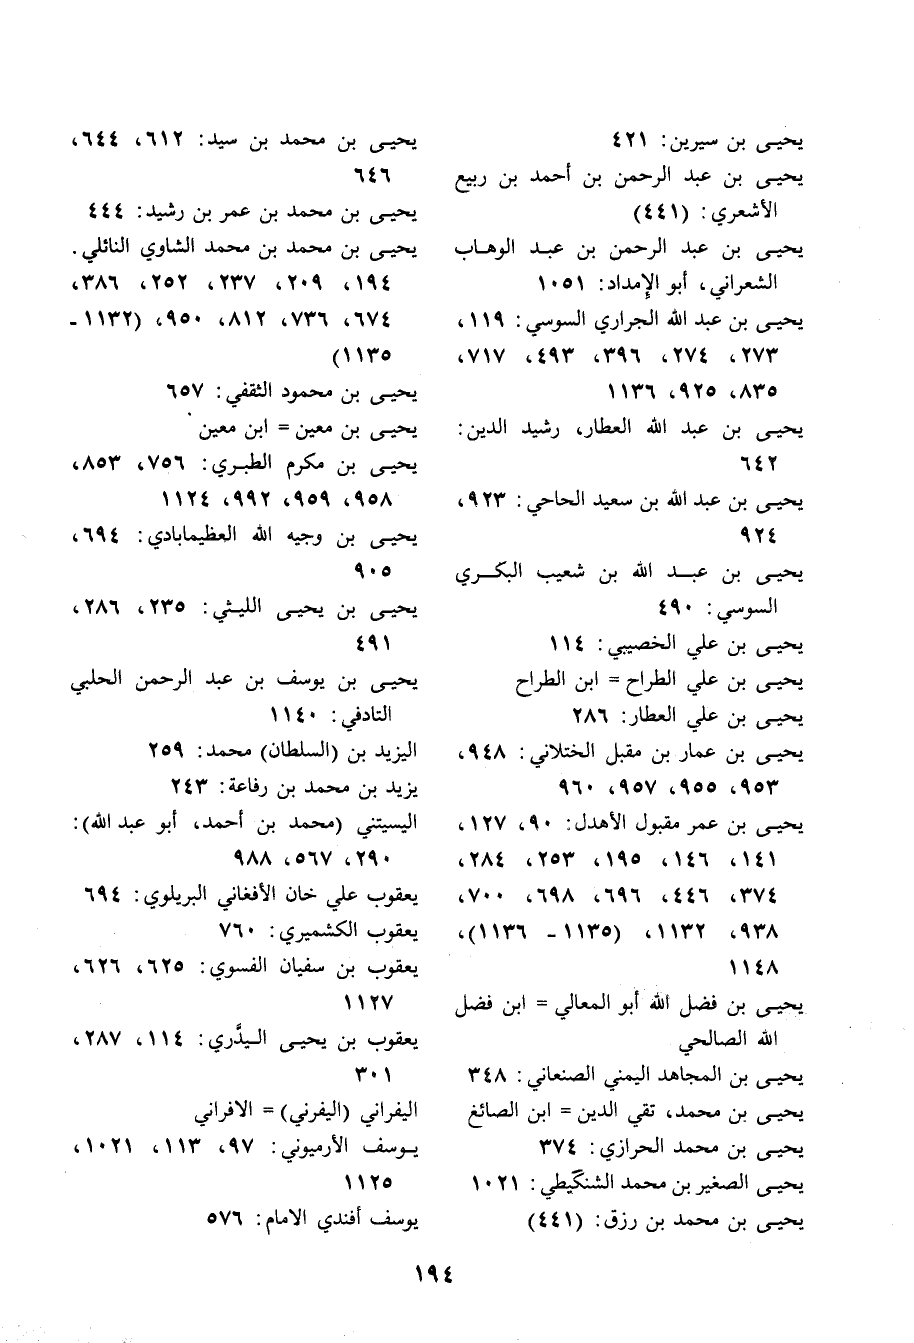 يحيى بن سيرين: ٤٢١
يحيى بن عبد الرحمن بن أحمد بن ربيع
الأشعري: (٤٤١)
يحيى بن عبد الرحمن بن عبد الوهاب
الشعراني، أبو الإمداد: ١٠٥١
يحيى بن عبد الله الجراري السوسي: ١١٩،
٢٧٣، ٢٧٤، ٣٩٦، ٤٩٣، ٧١٧،
٨٣٥، ٩٢٥، ١١٣٦
يحيى بن عبد الله العطار، رشيد الدين:
٦٤٢
يحيى بن عبد الله بن سعيد الحاحي: ٩٢٣،
٩٢٤
يحيى بن عبد الله بن شعيب البكري
السوسي: ٤٩٠
يحيى بن علي الخصيبي: ١١٤
يحيى بن علي الطراح = ابن الطراح
يحيى بن علي العطار: ٢٨٦
يحيى بن عمار بن مقبل الختلاني: ٩٤٨،
٩٥٣، ٩٥٥، ٩٥٧، ٩٦٠
يحيى بن عمر مقبول الأهدل: ٩٠، ١٢٧،
١٤١، ١٤٦، ١٩٥، ٢٥٣، ٢٨٤،
٣٧٤، ٤٤٦، ٦٩٦، ٦٩٨، ٧٠٠،
٩٣٨، ١١٣٢، (١١٣٥ - ١١٣٦)،
١١٤٨
يحيى بن فضل الله أبو المعالي = ابن فضل
الله الصالحي
يحيى بن المجاهد اليمني الصنعاني: ٣٤٨
يحيى بن محمد، تقي الدين = ابن الصائغ
يحيى بن محمد الحرازي: ٣٧٤
يحيى الصغير بن محمد الشنكيطي: ١٠٢١
يحيى بن محمد بن رزق: (٤٤١)
يحيى بن محمد بن سيد: ٦١٢، ٦٤٤،
٦٤٦
يحيى بن محمد بن عمر بن رشيد: ٤٤٤
يحيى بن محمد بن محمد الشاوي النائلي.
١٩٤، ٢٠٩، ٢٣٧، ٢٥٢، ٣٨٦،
٦٧٤، ٧٣٦، ٨١٢، ٩٥٠، (١١٣٢ -
١١٣٥)
يحيى بن محمود الثقفي: ٦٥٧
يحيى بن معين = ابن معين
يحيى بن مكرم الطبري: ٧٥٦، ٨٥٣،
٩٥٨، ٩٥٩، ٩٩٢، ١١٢٤
يحيى بن وجيه الله العظيمابادي: ٦٩٤،
٩٠٥
يحيى بن يحيى الليثي: ٢٣٥، ٢٨٦،
٤٩١
يحيى بن يوسف بن عبد الرحمن الحلبي
التادفي: ١١٤٠
اليزيد بن (السلطان) محمد: ٢٥٩
يزيد بن محمد بن رفاعة: ٢٤٣
اليسيتني (محمد بن أحمد، أبو عبد الله):
٢٩٠، ٥٦٧، ٩٨٨
يعقوب علي خان الأفغاني البريلوي: ٦٩٤
يعقوب الكشميري: ٧٦٠
يعقوب بن سفيان الفسوي: ٦٢٥، ٦٢٦،
١١٢٧
يعقوب بن يحيى اليدَّري: ١١٤، ٢٨٧،
٣٠١
اليفراني (اليفرني) = الافراني
يوسف الأرميوني: ٩٧، ١١٣، ١٠٢١،
١١٢٥
يوسف أفندي الامام: ٥٧٦
١٩٤